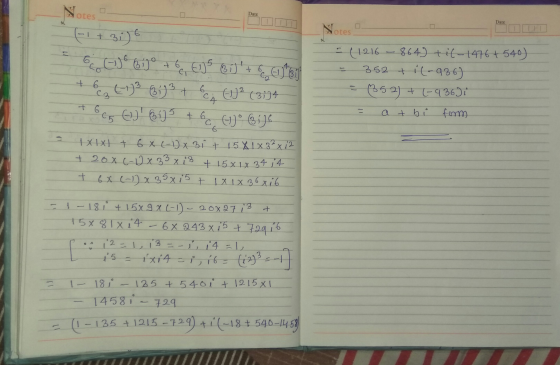 Notes
Date
(-1 + 3i)^6
= 6c₀(-1)^6 (3i)^0 + 6c₁(-1)^5 (3i)^1 + 6c₂(-1)^4 (3i)^2
+ 6c₃(-1)^3 (3i)^3 + 6c₄(-1)^2 (3i)^4
+ 6c₅(-1)^1 (3i)^5 + 6c₆(-1)^0 (3i)^6
= 1×1×1 + 6×(-1)×3i + 15×1×3^2×i^2
+ 20×(-1)×3^3×i^3 + 15×1×3^4 i^4
+ 6×(-1)×3^5×i^5 + 1×1×3^6×i^6
= 1-18i + 15×9×(-1) - 20×27i^3 +
15×81×i^4 - 6×243×i^5 + 729i^6
[∵ i^2 = 1, i^3 = -i, i^4 = 1,
i^5 = i×i^4 = i, i^6 = (i^2)^3 = -1]
= 1-18i - 135 + 540i + 1215×1
- 1458i - 729
= (1-135+1215-729) + i(-18+540-1458)
Notes
Date
= (1216 - 864) + i(-1476 + 540)
= 352 + i(-936)
= (352) + (-936)i
= a + bi form